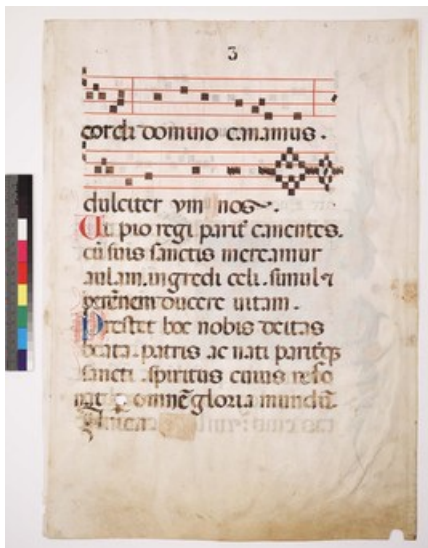 3
cordi domino canamus.
dulciter ymnos.
Ut pio regi parit̄ canentes.
cū suis sanctis mereamur
aulam. ingredi celi. simul ⁊
perēnem ducere uitam.
Prestet hoc nobis deitas
beata. patris ac nati paritqꝫ
sancti. spiritus cuius reso
omnē gloria mundū